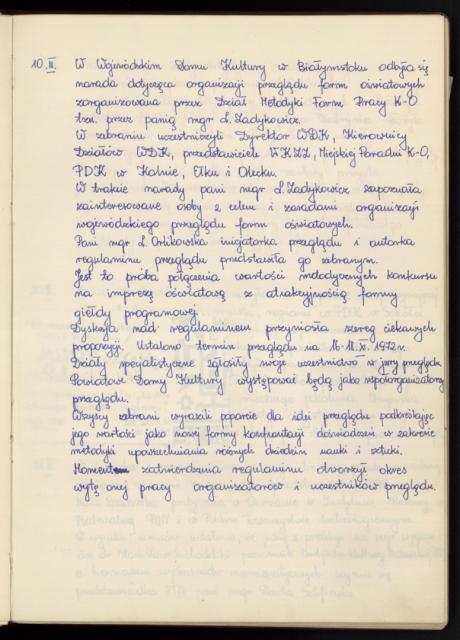 10.III. W Wojewódzkim Domu Kultury w Białymstoku odbyła się
narada dotycząca organizacji przeglądu form oświatowych
zorganizowana przez Dział Metodyki Form Pracy K-O
tzn. przez panią mgr L. Zadykowicz.
W zebraniu uczestniczyli Dyrektor WDK, Kierownicy
Działów WDK, przedstawiciele WKZZ, Miejskiej Poradni K-O,
PDK w Kolnie, Ełku i Olecku.
W trakcie narady pani mgr L. Zadykowicz zapoznała
zainteresowane osoby z celem i zasadami organizacji
wojewódzkiego przeglądu form oświatowych.
Pani mgr L. Orlikowska inicjatorka przeglądu i autorka
regulaminu przeglądu przedstawiła go zebranym.
Jest to próba połączenia wartości metodycznych konkursu
na imprezę oświatową z atrakcyjnością formy
giełdy programowej.
Dyskusja nad regulaminem przyniosła szereg ciekawych
propozycji. Ustalono termin przeglądu na XI. 1972 r.
Działy specjalistyczne zgłosiły swoje uczestnictwo w jury przeglądu
Powiatowe Domy Kultury występować będą jako współorganizatorzy
przeglądu.
Wszyscy zebrani wyrazili poparcie dla idei przeglądu podkreślając
jego wartości jako nowej formy konfrontacji doświadczeń w zakresie
metodyki upowszechniania różnych dziedzin nauki i sztuki.
Moment zatwierdzenia regulaminu otworzył okres
wytężonej pracy organizatorów i uczestników przeglądu.